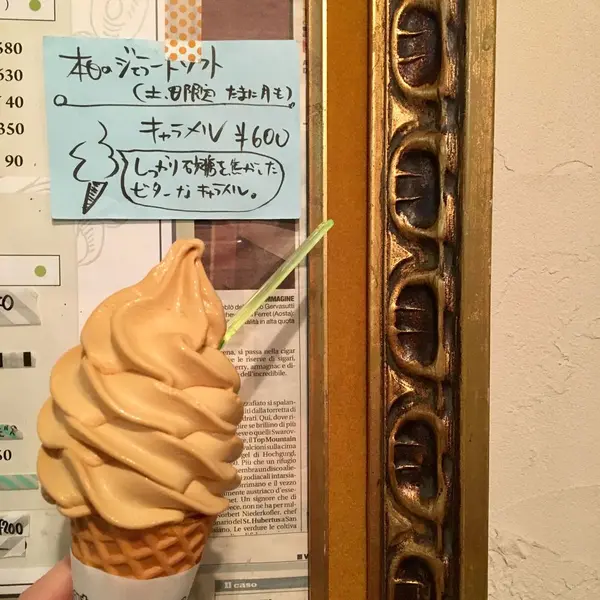 本日のジェラートソフト
(土、日限定 たまに月も)
キャラメル ¥600
しっかり砂糖を焦がした
ビターなキャラメル。
680
630
40
350
90
50
¥200
IMMAGINE
Gervasutti
Ferret (Aosta);
in alta quota
si passa nella cigar
le riserve di sigari,
armagnac e di-
dell'incredibile.
dalla torretta di
Qui, dove ri-
se brillino di più
o quelli Swarov-
il Top Mountain
sulla cima
gel di Hochgurgl.
Più che un rifugio
sembra un disco alie-
zodiacali intarsia-
austriaco d'esse-
Un signore di
non ne ha per nul-
Norbert Niederkofler, chef
del St. Hubertus a San
Le verdure le coltiva
Il caso